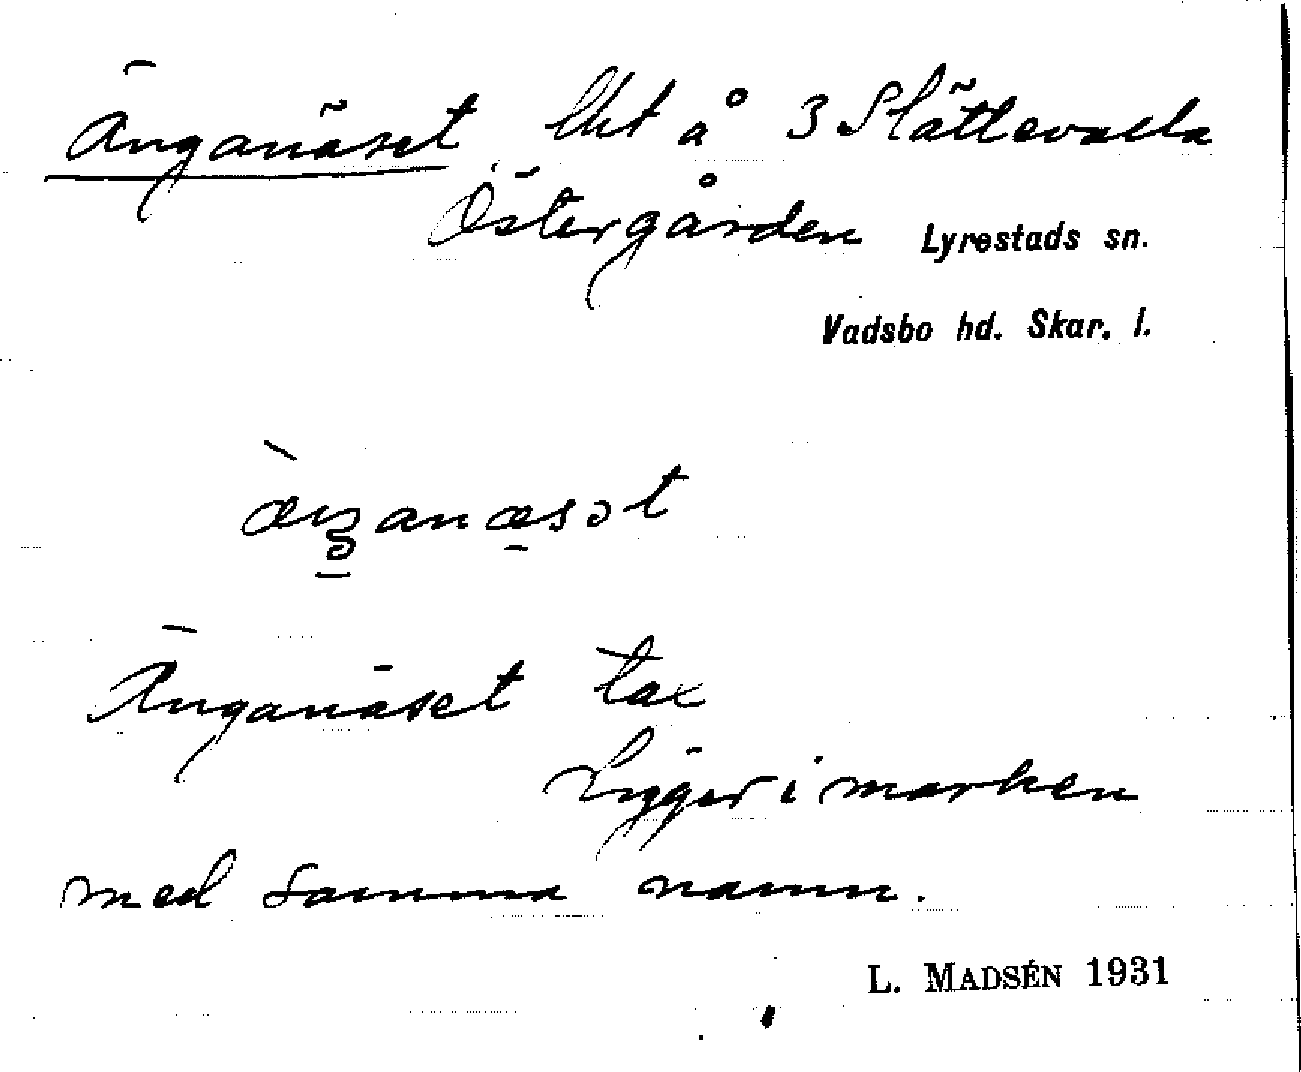 Änganäset lht å 3 Slättevalla
Östergården Lyrestads sn.
Vadsbo hd. Skar. l.
Änganäset tax
Ligger i marken
med samma namn.
L. MADSÉN 1931